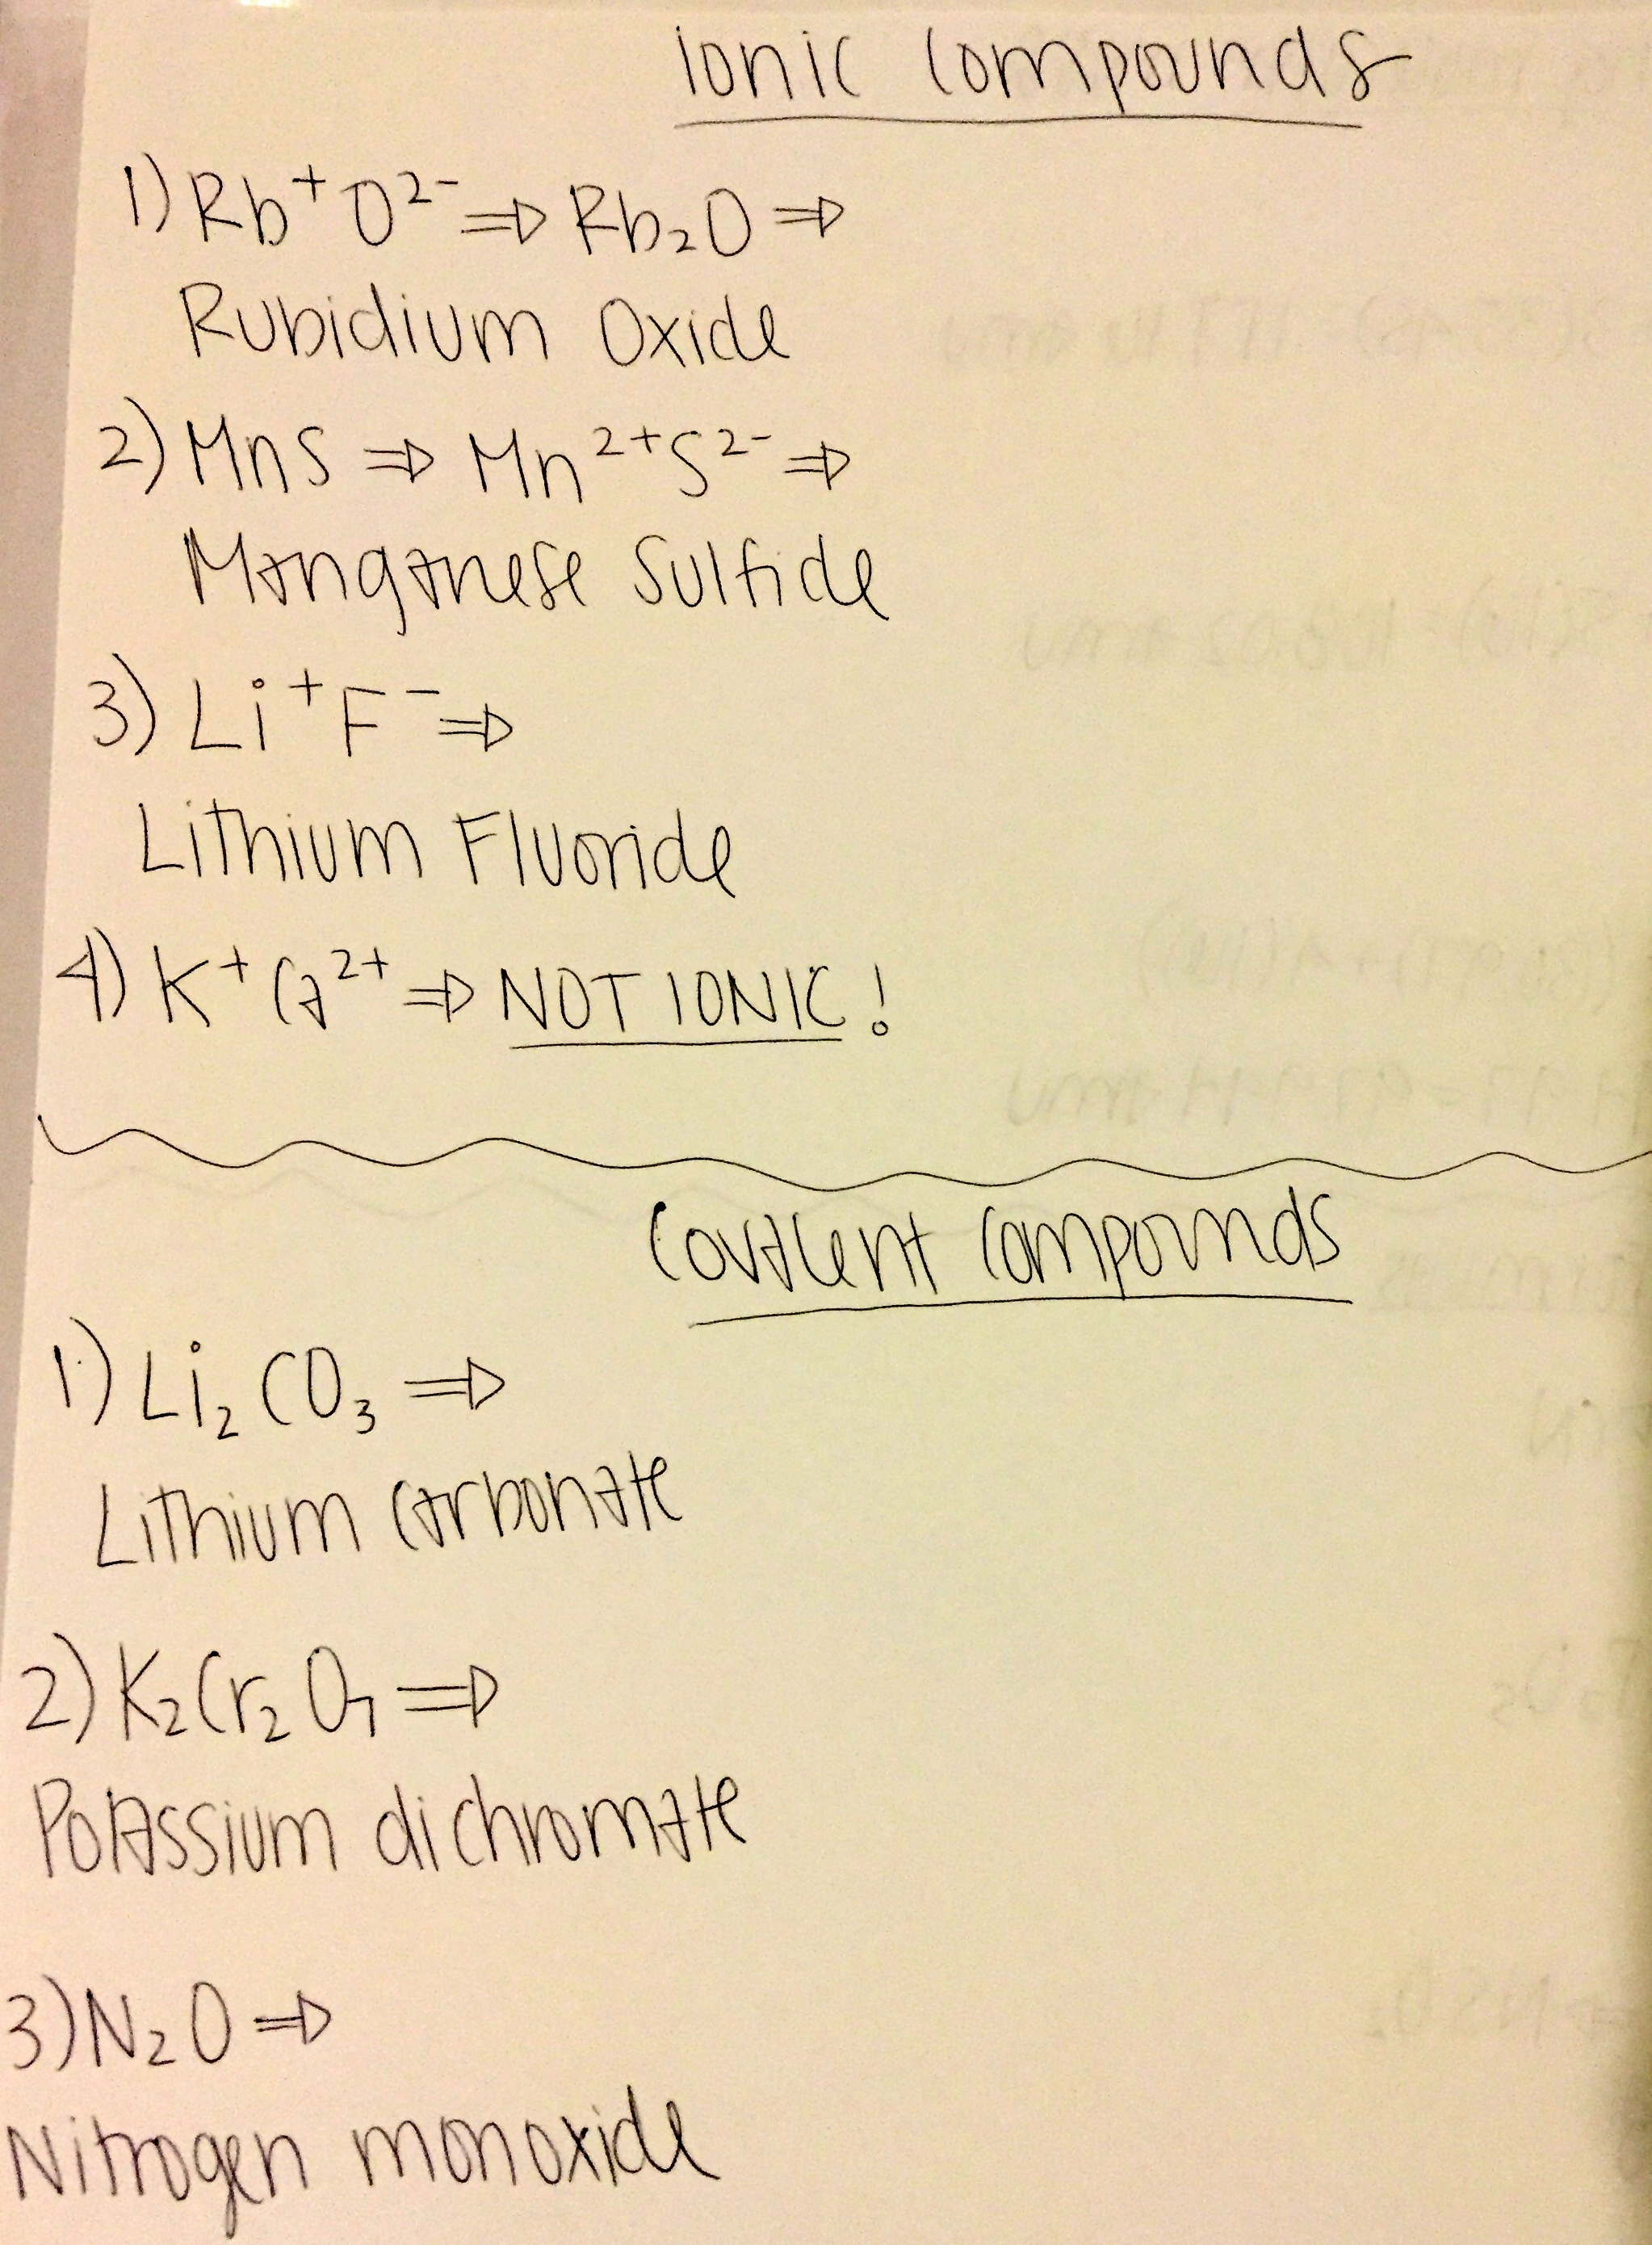 Ionic Compounds
1) Rb⁺ O²⁻ ⇒ Rb₂O ⇒
Rubidium Oxide
2) MnS ⇒ Mn²⁺ S²⁻ ⇒
Manganese Sulfide
3) Li⁺ F⁻ ⇒
Lithium Fluoride
4) K⁺ Ca²⁺ ⇒ NOT IONIC!
Covalent Compounds
1) Li₂CO₃ ⇒
Lithium carbonate
2) K₂Cr₂O₇ ⇒
Potassium dichromate
3) N₂O ⇒
Nitrogen monoxide